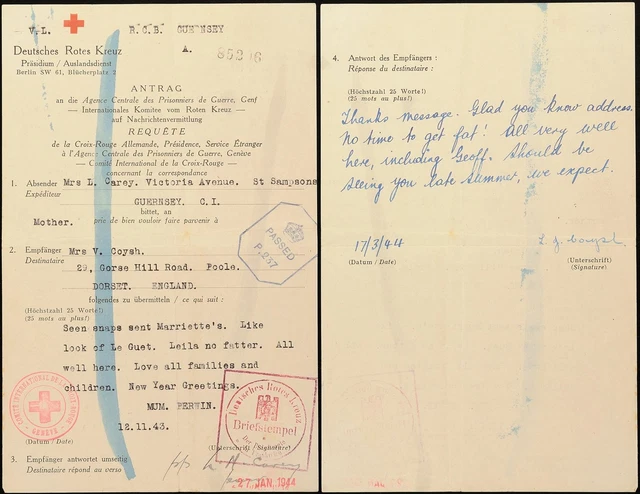 V.L. R.C.B. GUERNSEY
A.
Deutsches Rotes Kreuz
Präsidium / Auslandsdienst
Berlin SW 61, Blücherplatz 2
ANTRAG
an die Agence Centrale des Prisonniers de Guerre, Genf
— Internationales Komitee vom Roten Kreuz —
auf Nachrichtenvermittlung
REQUÊTE
de la Croix-Rouge Allemande, Présidence, Service Étranger
à l'Agence Centrale des Prisonniers de Guerre, Genève
— Comité International de la Croix-Rouge —
concernant la correspondance
1. Absender Mrs L. Carey. Victoria Avenue. St Sampsons
Expéditeur
GUERNSEY. C.I.
bittet, an
Mother. prie de bien vouloir faire parvenir à
PASSED
P.237
2. Empfänger Mrs V. Coysh.
Destinataire
29, Gorse Hill Road. Poole.
DORSET. ENGLAND.
folgendes zu übermitteln / ce qui suit :
(Höchstzahl 25 Worte!)
(25 mots au plus!)
Seen snaps sent Marriette's. Like
look of Le Guet. Leila no fatter. All
well here. Love all families and
children. New Year Greetings.
MUM. PERWIN.
12.11.43.
(Datum / Date)
(Unterschrift / Signature)
COMITÉ INTERNATIONAL DE LA CROIX-ROUGE
GENÈVE
Deutsches Rotes Kreuz
Briefstempel
27 JAN 1944
3. Empfänger antwortet umseitig
Destinataire répond au verso
4. Antwort des Empfängers :
Réponse du destinataire :
(Höchstzahl 25 Worte!)
(25 mots au plus!)
Thanks message. Glad you know address.
No time to get fat! All very well
here, including Geoff. Should be
seeing you late summer, we expect.
17/3/44
(Datum / Date)
(Unterschrift)
(Signature)